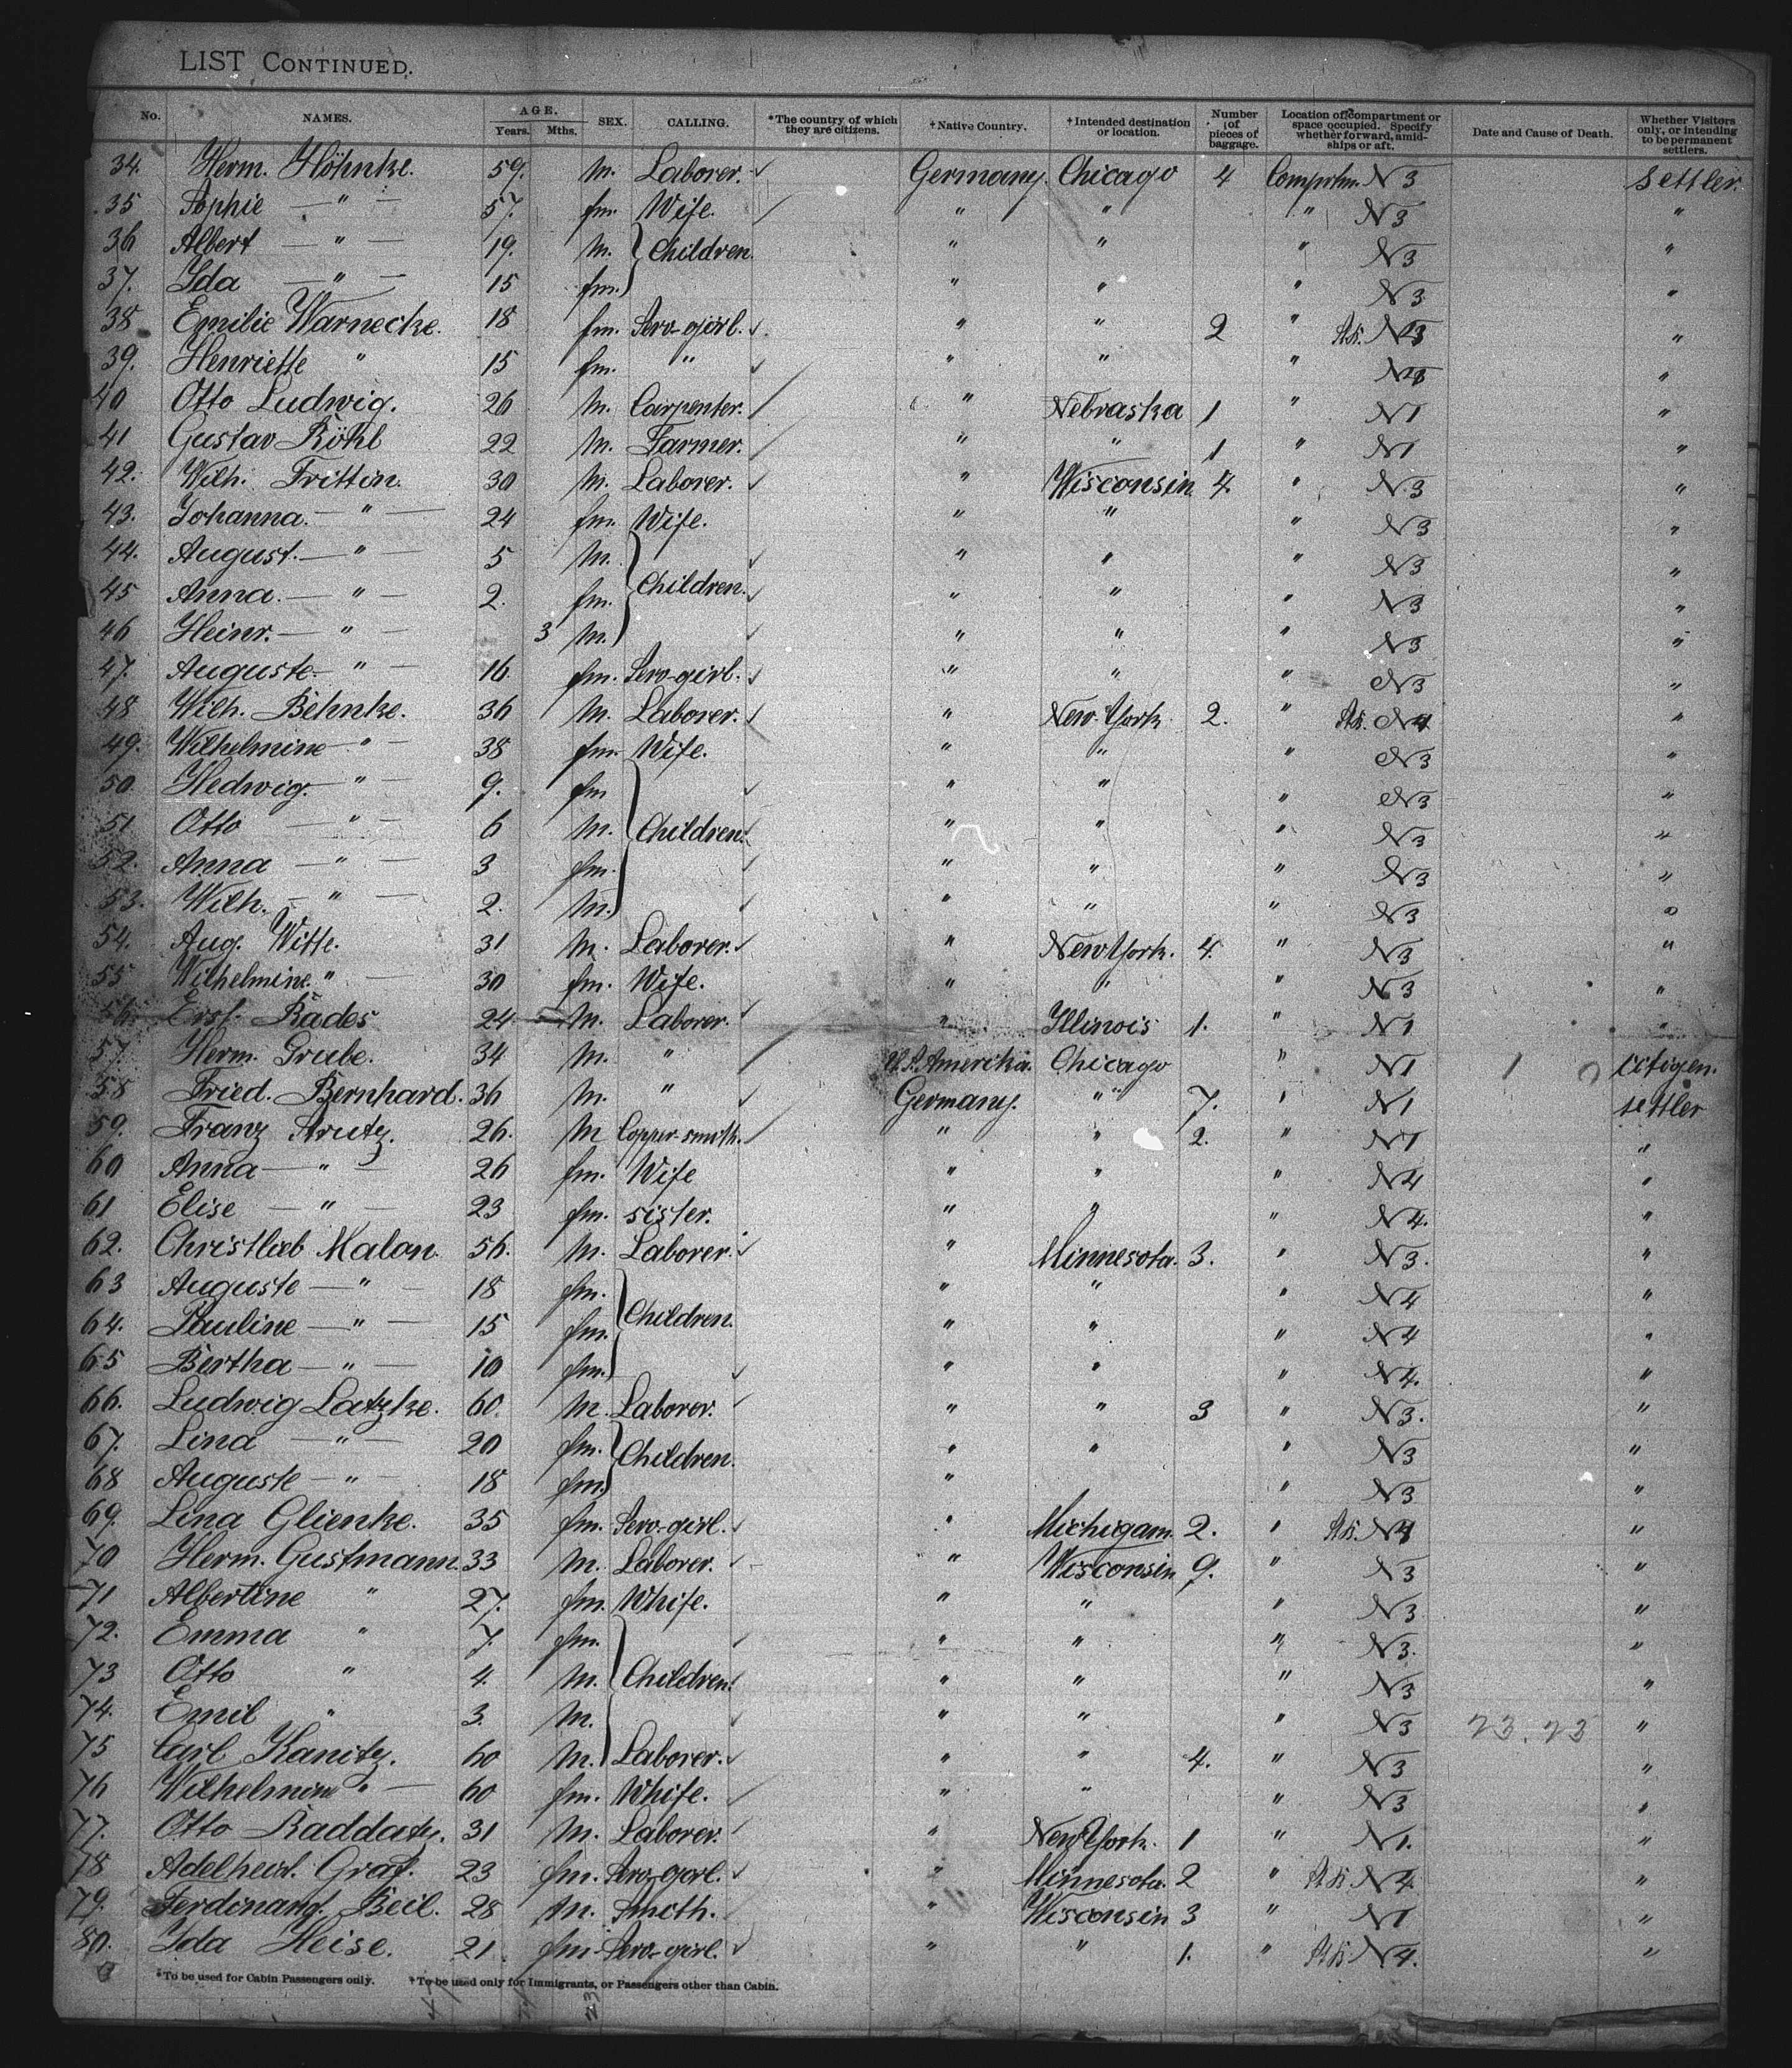 LIST CONTINUED.
No. NAMES. AGE. Years. Mths. SEX. CALLING. *The country of which they are citizens. †Native Country. †Intended destination or location. Number of pieces of baggage. Location of compartment or space occupied. Specify whether forward, amidships or aft. Date and Cause of Death. Whether Visitors only, or intending to be permanent settlers.
34. Herm. Höhnke. 59. m. Laborer. Germany. Chicago 4 Comprtm. N3 settler.
35 Sophie — " — 57. fm. Wife. " " " N3 "
36 Albert — " — 19. m. Children. " " " N3 "
37. Ida — " — 15 fm. " " " N3 "
38 Emilie Warnecke. 18 fm. Serv-girl. " " 2 " N3 "
39. Henriette " 15 fm. " " " " N3 "
40 Otto Ludwig. 26 m. Carpenter. " Nebraska 1 " N1 "
41 Gustav Röhl 22 m. Farmer. " " 1 " N1 "
42. Wilh. Frittin. 30 m. Laborer. " Wisconsin 4. " N3 "
43. Johanna. — " — 24 fm. Wife. " " " N3 "
44. August. — " — 5 m. " " " N3 "
45 Anna. — " — 2. fm. Children. " " " N3 "
46 Heinr. — " — 3 m. " " " N3 "
47. Auguste — " — 16 fm. Serv-girl. " " " N3 "
48 Wilh. Behnke. 36 m. Laborer. " New-York 2. " N4 "
49. Wilhelmine — " — 38 fm. Wife. " " " N3 "
50 Hedwig. — " — 9. fm " " " N3 "
51 Otto — " — 6 m. Children. " " " N3 "
52. Anna — " — 3 fm. " " " N3 "
53. Wilh. — " — 2. m. " " " N3 "
54. Aug. Witte. 31 m. Laborer. " New York. 4. " N3 "
55 Wilhelmine. " — 30 fm. Wife. " " " N3 "
56. Erst. Rades 24 m. Laborer. " Illinois 1. " N1 "
57. Herm. Grube. 34 m. " U.S. Amerika. Chicago " N1 citizen.
58 Fried. Bernhard. 36 m. " Germany. " 7. " N1 settler
59. Franz Arutz. 26. m Copper-smith. " " 2. " N1 "
60 Anna — " — 26 fm. Wife " " " N4 "
61 Elise — " — 23 fm. sister. " " " N4. "
62. Christlieb Malon. 56. m. Laborer. " Minnesota. 3. " N3. "
63 Auguste — " — 18 fm. " " " N4 "
64. Pauline — " — 15 fm. Children. " " " N4 "
65 Bertha — " — 10 fm. " " " N4. "
66. Ludwig Latzke. 60. m. Laborer. " " 3 " N3. "
67. Lina — " — 20 fm. Children. " " " N3 "
68 Auguste — " — 18 fm. " " N3 "
69. Lina Glienke. 35 fm. Serv-girl. " Michigam. 2. " N4 "
70 Herm. Gustmann. 33 m. Laborer. " Wisconsin 9. " N3 "
71 Albertine " 27. fm. Whife. " " " N3 "
72. Emma " 7. fm. " " " N3. "
73 Otto " 4. m. Children. " " " N3 "
74. Emil " 3. m. " " " N3 23.23 "
75 Carl Kanitz. 60 m. Laborer. " " 4. " N3 "
76 Wilhelmine " — 60 fm. Whife. " " " N3 "
77. Otto Raddatz. 31 m. Laborer. " New York. 1 " N1. "
78 Adelheid. Graf. 23 fm. Serv-girl. " Minnesota. 2 " N4. "
79. Ferdinand. Beil. 28 m. Smith. " Wisconsin 3 " N1 "
80. Ida Heise. 21. fm. Serv-girl. " " 1. " N4. "
*To be used for Cabin Passengers only. †To be used only for Immigrants, or Passengers other than Cabin.